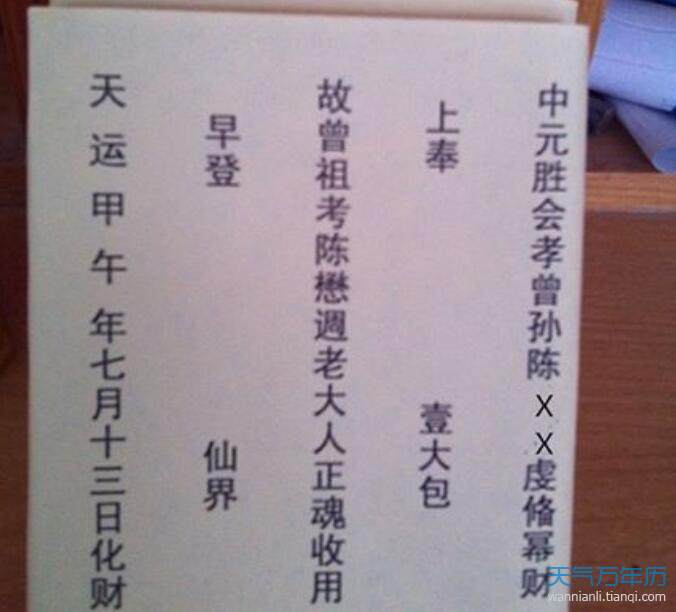 中元胜会孝曾孙陈XX虔偹冥财
上奉 壹大包
故曾祖考陈懋週老大人正魂收用
早登 仙界
天运甲午年七月十三日化财
天气万年历
wannianli.tianqi.com